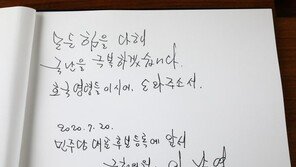 모든 힘을 다해
국난을 극복하겠습니다.
호국영령들이시여, 도와주소서.
2020. 7. 20.
민주당 대표 후보등록에 앞서
국회의원 이낙연